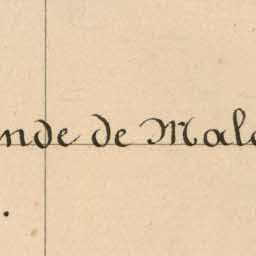 nde de Mal
.